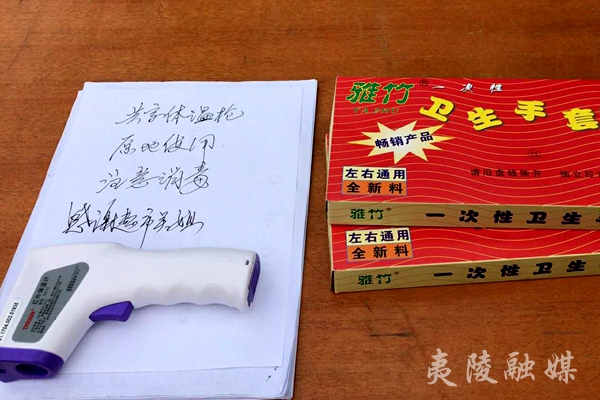 共享体温枪
原地使用
注意消毒
感谢超市关姐
雅竹®一次性
YA ZHU
卫生手套
畅销产品
左右通用
全新料
雅竹® 一次性卫生手
左右通用
全新料
雅竹® 一次性卫生
夷陵融媒